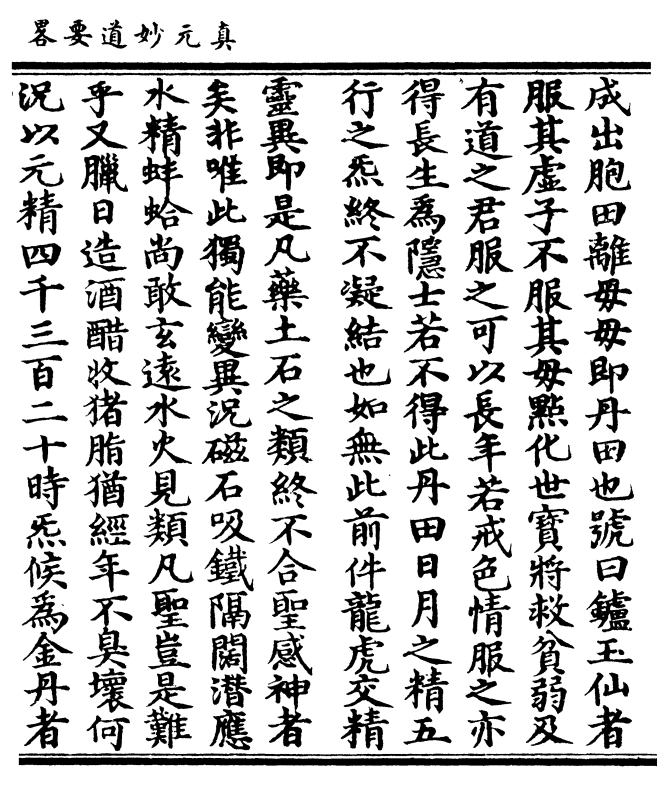 真元妙道要畧
成出胞田離毋毋即丹田也號曰鑪玉仙者
服其虛子不服其毋點化世寶將救貧弱及
有道之君服之可以長年若戒色情服之亦
得長生爲隱士若不得此丹田日月之精五
行之炁終不凝結也如無此前件龍虎交精
靈異即是凡藥土石之類終不合聖感神者
矣非唯此獨能變異況磁石吸鐵隔閡潛應
水精蚌蛤尚敢玄遠水火見類凡聖豈是難
乎又臘日造酒醋收猪脂猶經年不臭壞何
況以元精四千三百二十時炁候爲金丹者